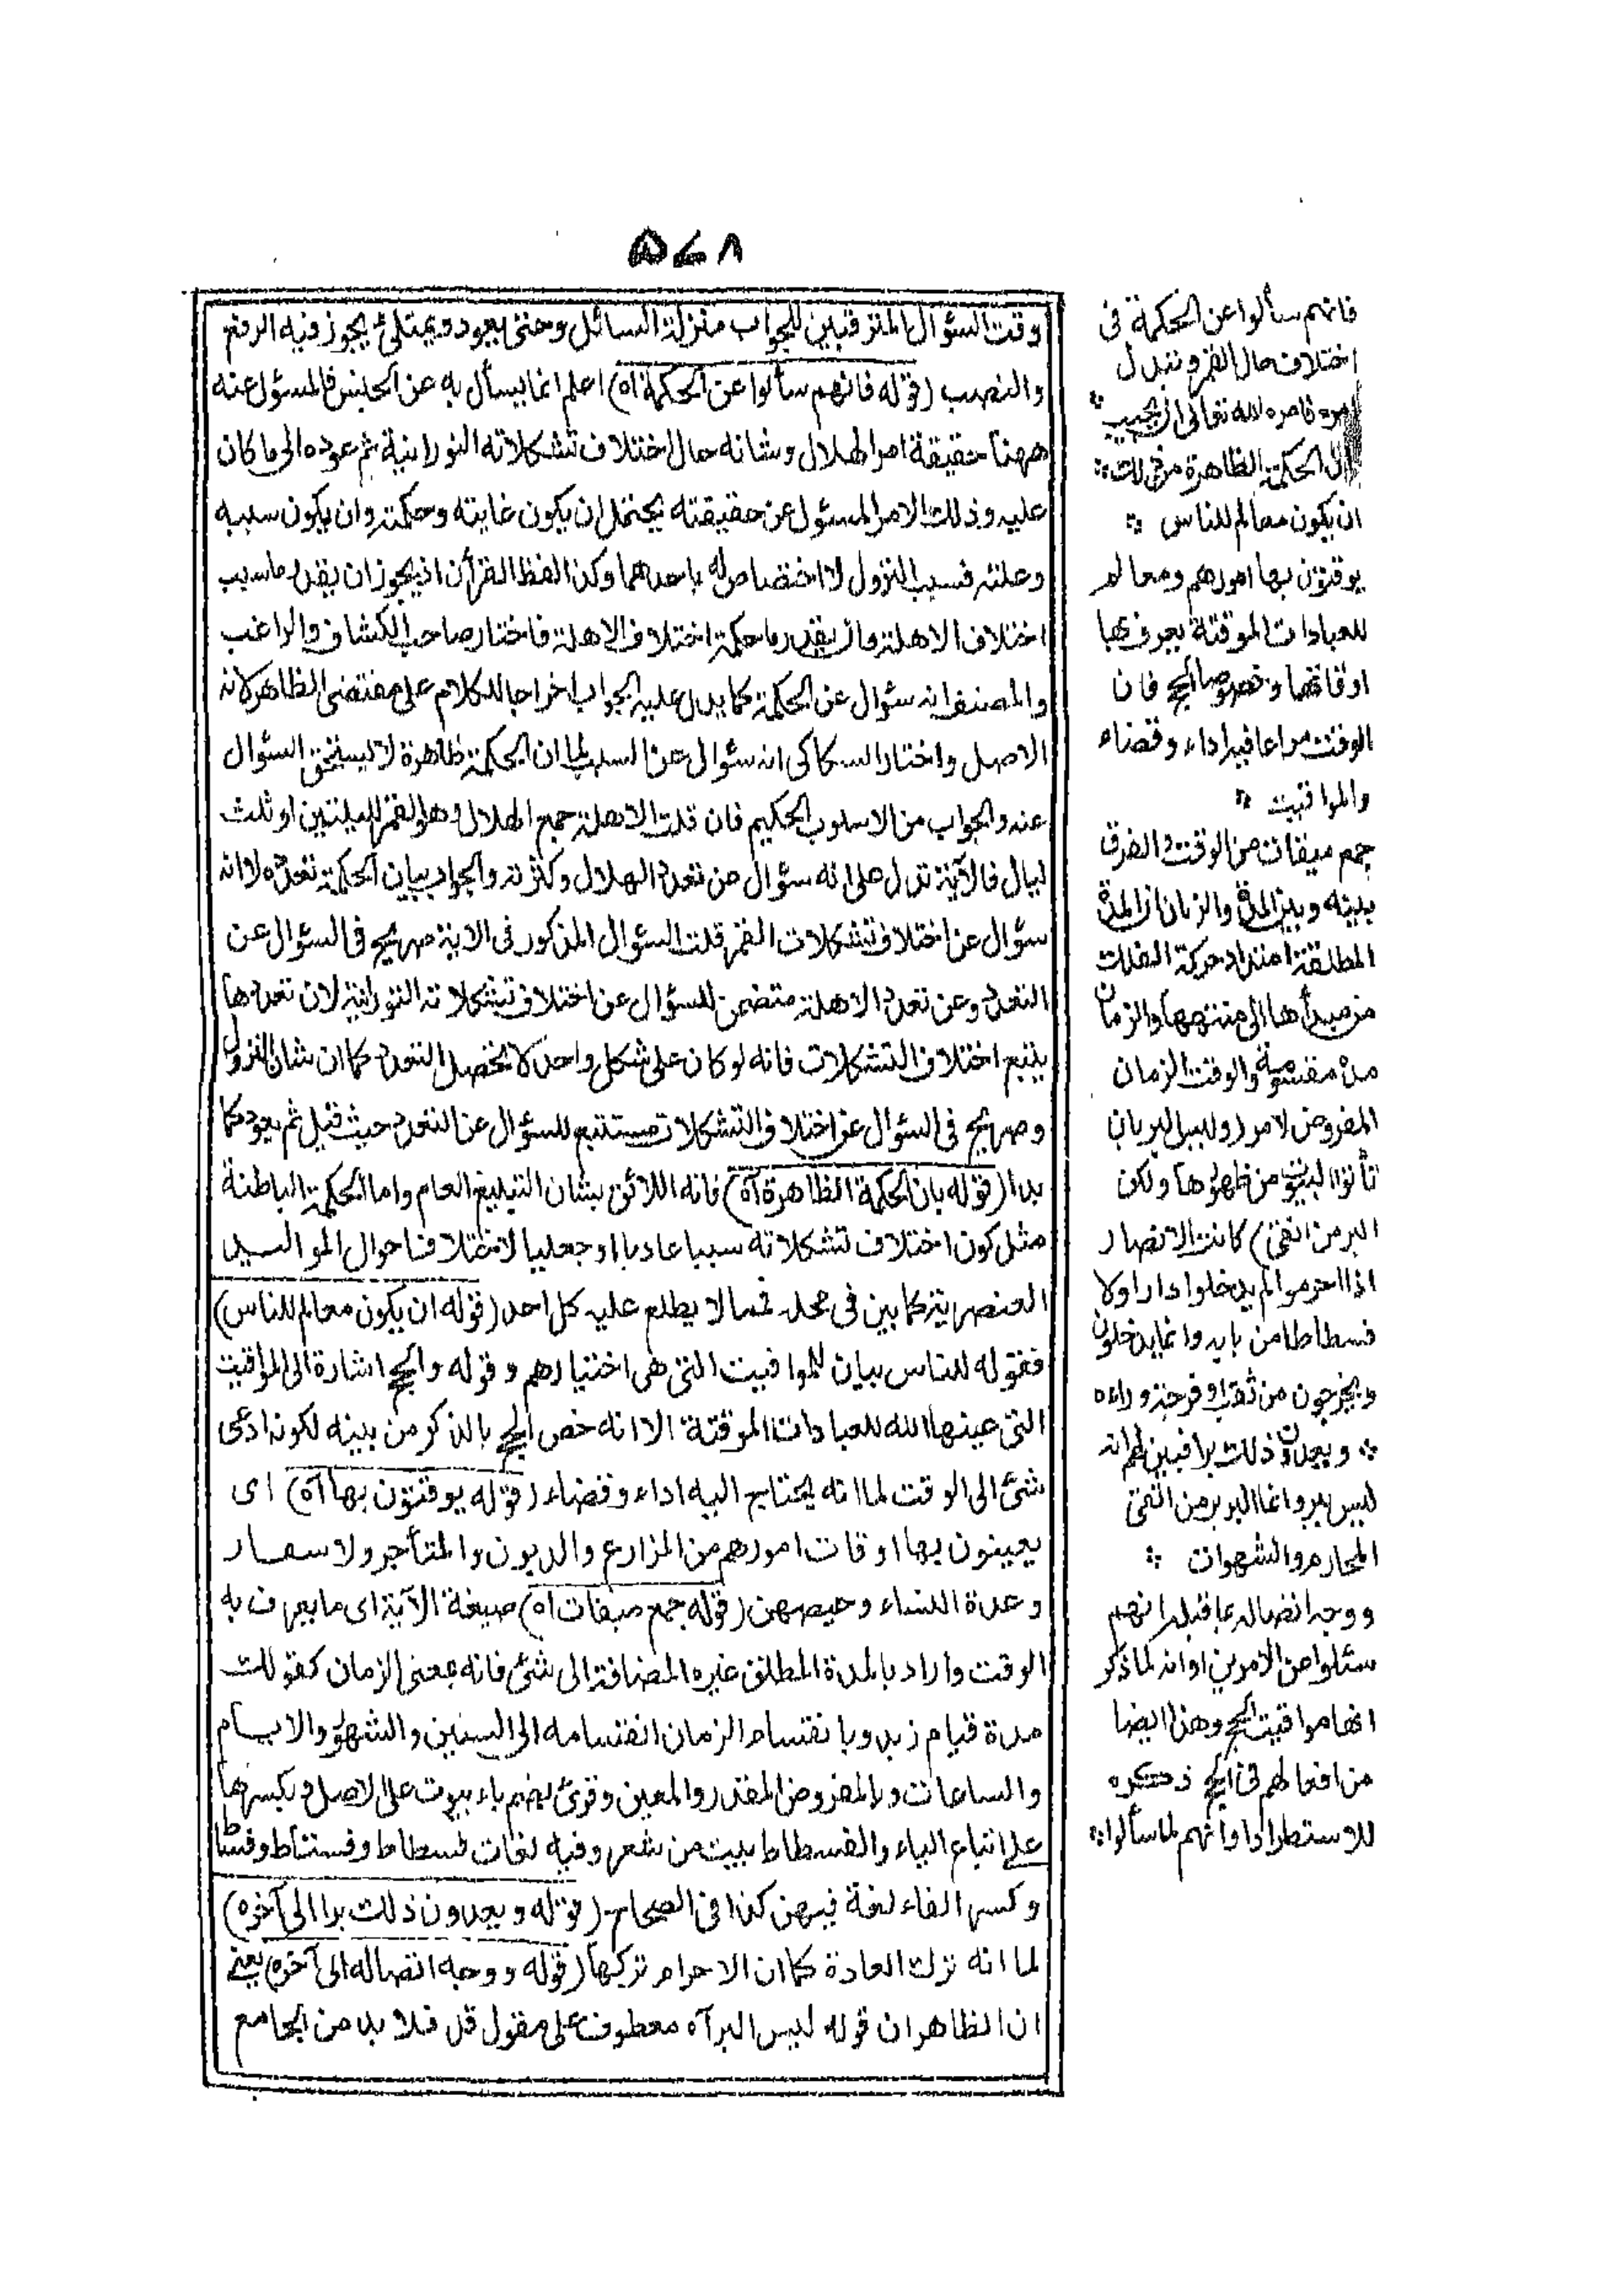 ۵۶۸
وقت السؤال المترقبين للجواب منزلة السائل وحتى يعود ويمتلئ يجوز فيه الرفع
والنصب (قوله فانهم سألوا عن الحكمة اه) اعلم انما يسأل به عن الجنس فالمسؤل عنه
ههنا حقيقة امر الهلال وشانه حال اختلاف تشكلاته النورانية ثم عوده الى ما كان
عليه وذلك الامر المسئول عن حقيقته يحتمل ان يكون غايته وحكمته وان يكون سببه
وعلته فسبب النزول لا اختصاص له باحدهما وكذا لفظ القرأن اذ يجوز ان يقدر ما سبب
اختلاف الاهلة وان يقدر ما حكمة اختلاف الاهلة فاختار صاحب الكشاف والراغب
والمصنف انه سؤال عن الحكمة كما يدل عليه الجواب اخراجا للكلام على مقتضى الظاهر لانه
الاصل واختار السكاكى انه سئوال عن السبب لما ان الحكمة ظاهرة لا تستحق السئوال
عنه والجواب من الاسلوب الحكيم فان قلت الاهلة جمع الهلال وهو القمر لليلتين او ثلث
ليال فالآية تدل على انه سئوال عن تعدد الهلال وكثرته والجواب ببيان الحكمة تعدده لا انه
سؤال عن اختلاف تشكلات القمر قلت السئوال المذكور فى الاية صريح فى السئوال عن
التعدد وعن تعدد الاهلة متضمن للسؤال عن اختلاف تشكلاته النورانية لان تعددها
يتبع اختلاف التشكلات فانه لو كان على شكل واحد لا يحصل التعدد كما ان شان النزول
وصريح فى السئوال عن اختلاف التشكلات مستتبع للسئوال عن التعدد حيث قيل ثم يعود كما
بدا (قوله بان الحكمة الظاهرة آه) فانه اللائق بشان التبليغ العام واما الحكمة الباطنة
مثل كون اختلاف تشكلاته سببا عاديا او جعليا لاختلاف احوال المواليد
العنصرية كما بين فى محله فمما لا يطلع عليه كل احد (قوله ان يكون معالم للناس)
فقوله للناس بيان للمواقيت التى هى اختيارهم وقوله والحج اشارة الى المواقيت
التى عينها الله للعبادات الموقتة الا انه خص الحج بالذكر من بينه لكونه ادعى
شئ الى الوقت لما انه يحتاج اليه اداء وقضاء (قوله يوقتون بها آه) اى
يعينون بها اوقات امورهم من المزارع والديون والمتأجر ولاسعار
وعدة النساء وحيضهن (قوله جمع ميقات اه) صيغة الآية اى ما يعرف به
الوقت واراد بالمدة المطلق غيره المضافة الى شئ فانه بمعنى الزمان كقولك
مدة قيام زيد وبانقسام الزمان انقسامه الى السنين والشهور والايام
والساعات وبالمفروض المقدر والمعين وقرئ بضم باء بيوت على الاصل وبكسرها
على اتباع الياء والفسطاط بيت من شعر وفيه لغات فسطاط وفستاط وفساط
وكسر الفاء لغة فيهن كذا فى الصحاح (قوله ويعدون ذلك برا الى آخره)
لما انه ترك العادة كما ان الاحرام تركها (قوله ووجه اتصاله الى آخره) يعنى
ان الظاهر ان قوله ليس البر آه معطوف على مقول قل فلا بد من الجامع
فانهم سألوا عن الحكمة فى
اختلاف حال القمر وتبدل
امره فامره الله تعالى ان يجيب
الحكمة الظاهرة من ذلك
ان يكون معالم للناس
يوقتون بها امورهم ومعالم
للعبادات الموقتة يعرف بها
اوقاتها وخصوصا الحج فان
الوقت مراعا فيه اداء وقضاء
والمواقيت
جمع ميقات من الوقت والفرق
بينه وبين المدة والزمان ان المدة
المطلقة امتداد حركة الفلك
من مبدأها الى منتهىها والزمان
مدة مقسومة والوقت الزمان
المفروض لامر (وليس البر بان
تأتوا البيوت من ظهورها ولكن
البر من اتقى) كانت الانصار
اذا احرموا لم يدخلوا دارا ولا
فسطاطا من بابه وانما يدخلون
ويخرجون من ثقب او فرجة وراءه
ويعدون ذلك برا فبين لهم انه
ليس ببر وانما البر بر من اتقى
المحارم والشهوات
ووجه اتصاله بما قبله انهم
سئلوا عن الامرين او انه لما ذكر
انها مواقيت الحج وهذا ايضا
من افعالهم فى الحج ذكره
للاستطراد او انهم لما سألوا